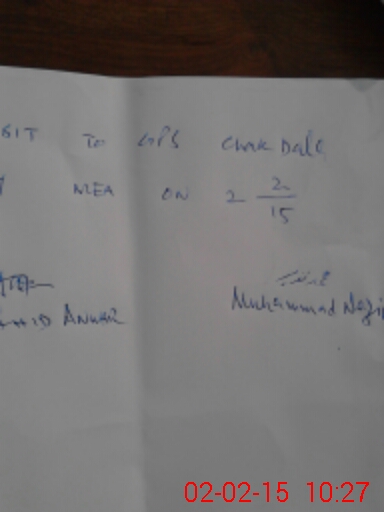 SIT To GPS Chak Dale
MEA ON 2 2/15
Anwar Muhammad Nazir
02-02-15 10:27